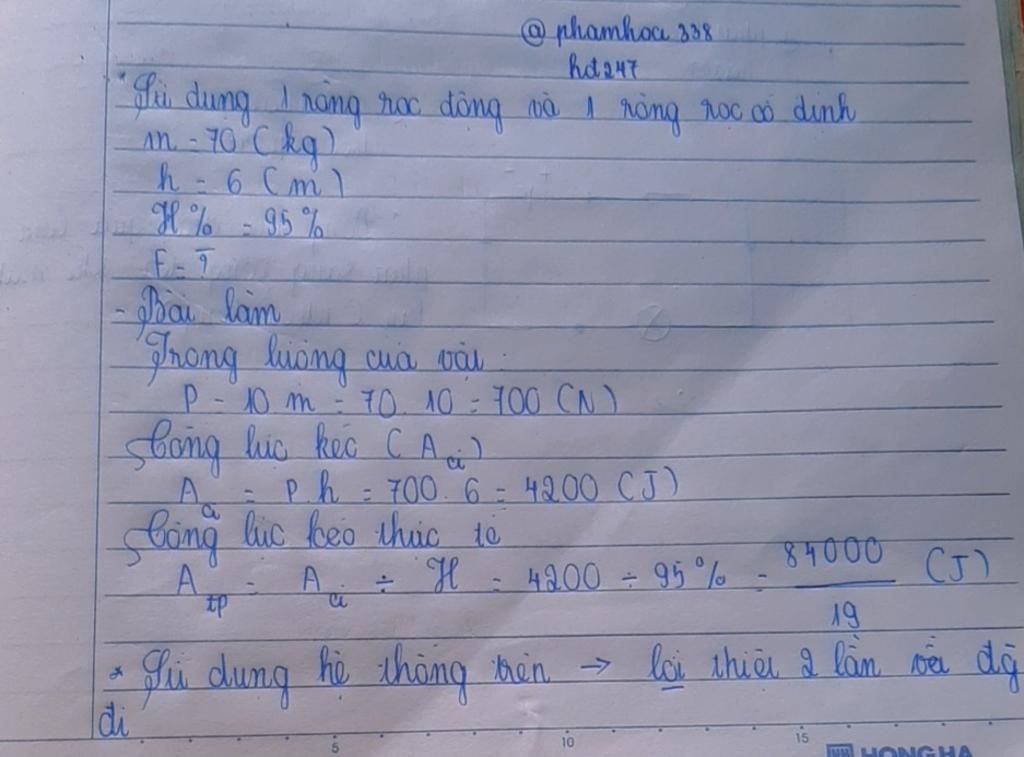 @ phamhoa 338
hd247
* Sử dụng 1 ròng rọc động và 1 ròng rọc cố định
m = 70 (kg)
h = 6 (m)
H% = 95%
F = ?
- Bài làm
Trọng lượng của vài
P = 10 m = 70. 10 = 700 (N)
Công lực kéo (A ci)
A ci = P. h = 700. 6 = 4200 (J)
Công lực kéo thực tế
A tp = A ci ÷ H = 4200 ÷ 95% = 84000/19 (J)
* Sử dụng hệ thống trên → lợi thiệt 2 lần về đg
đi
5 10 15
HONG HA